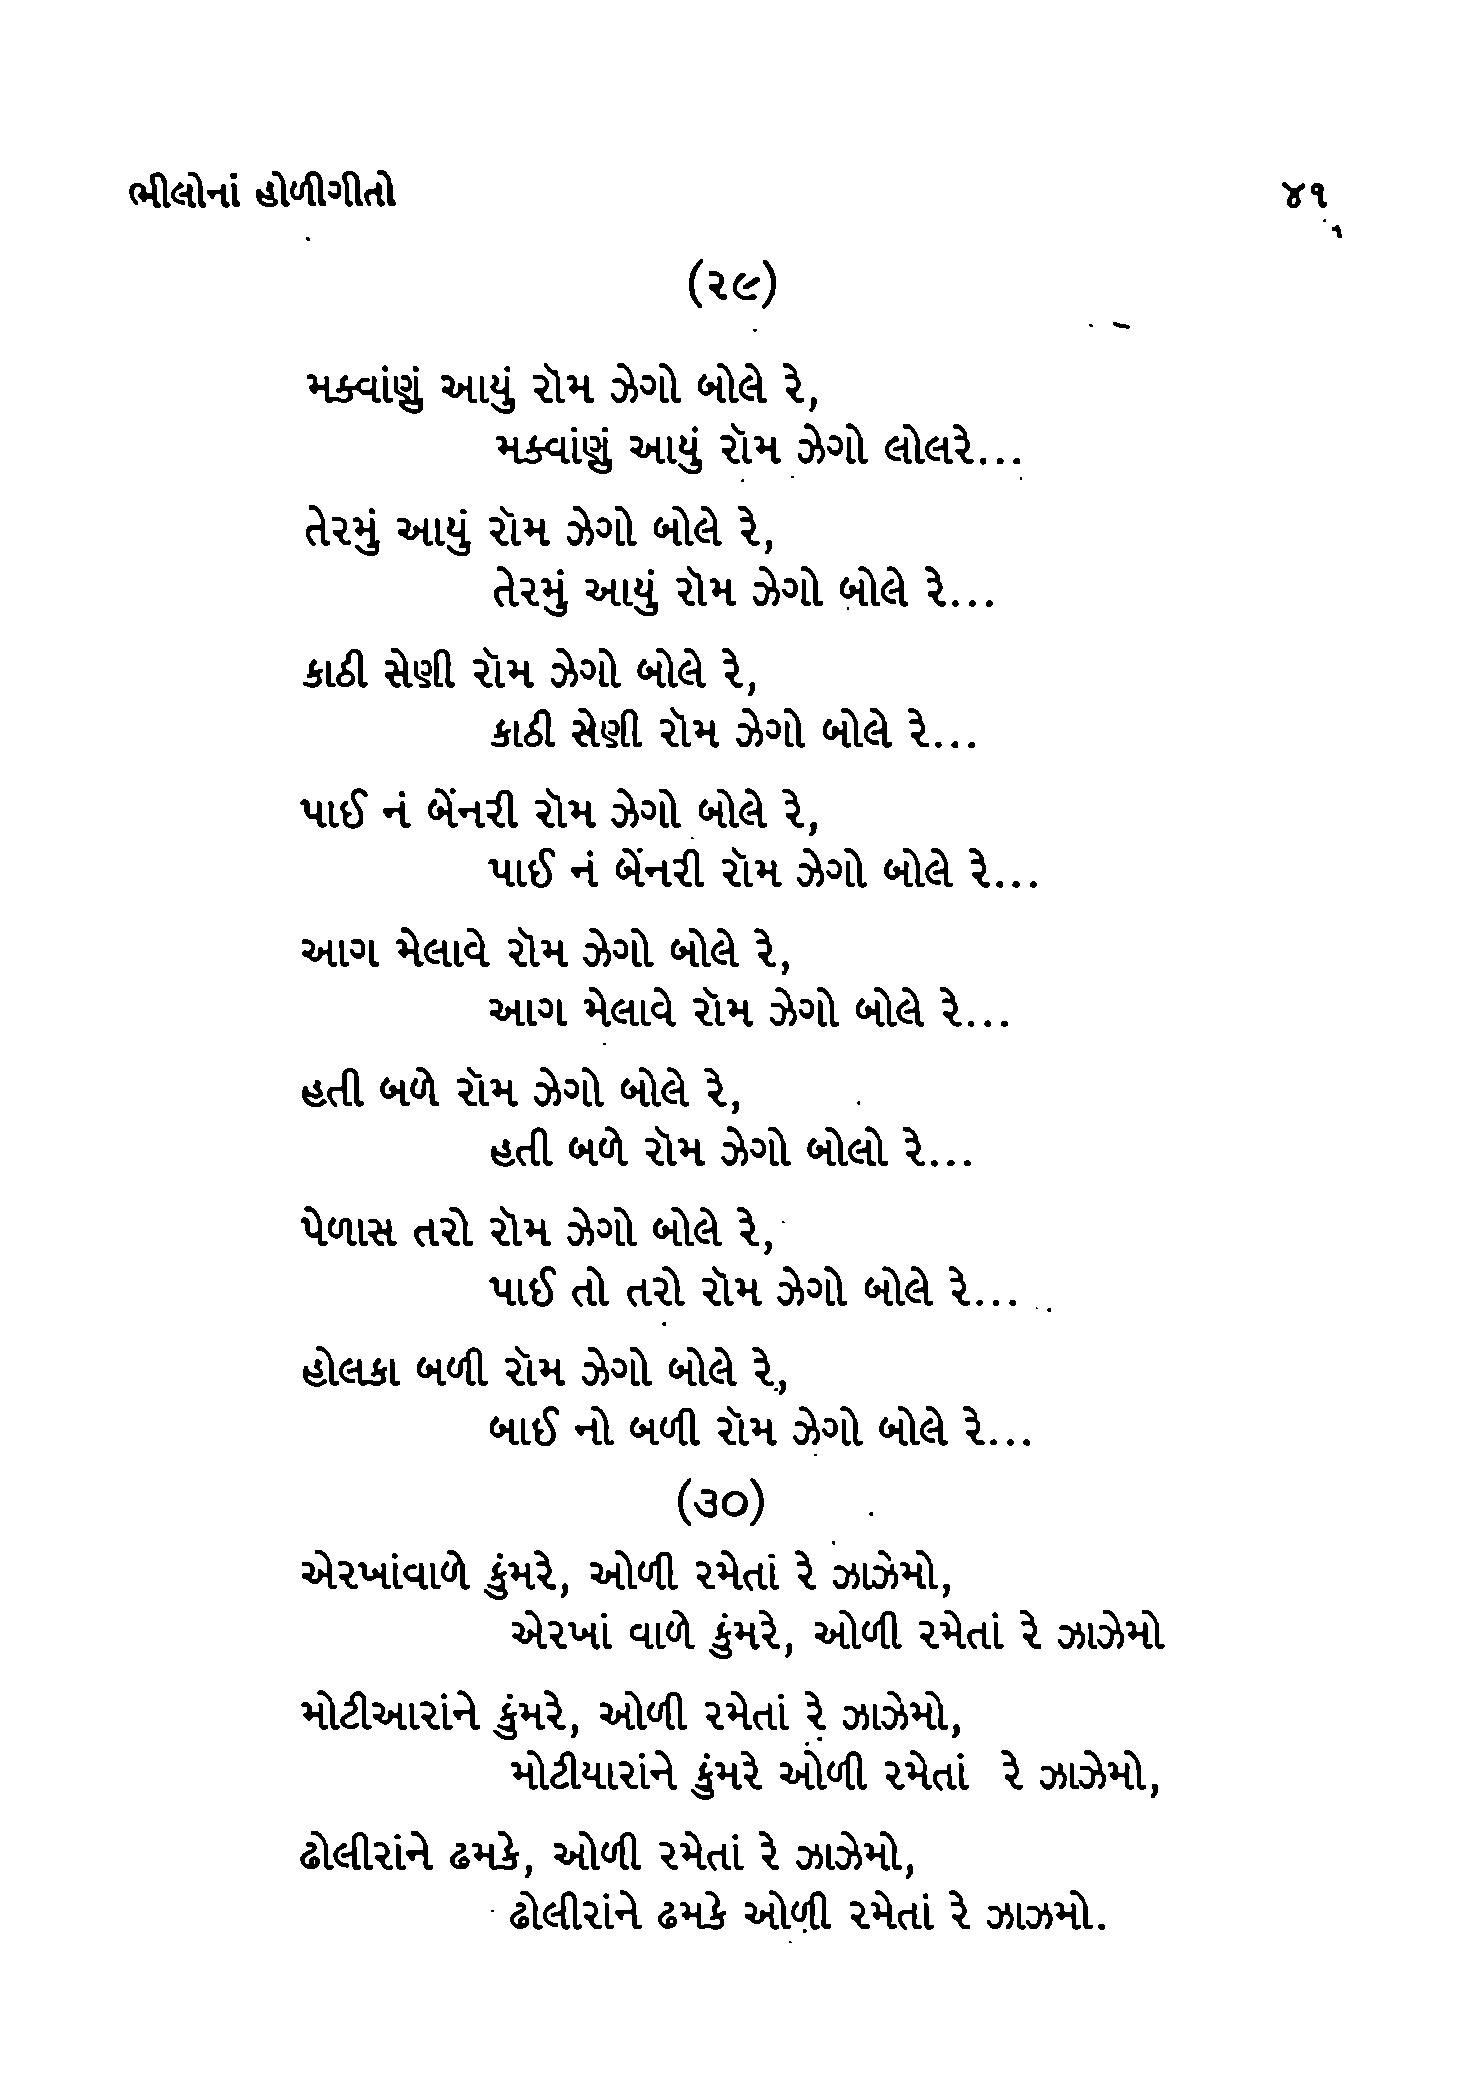 ભીલોનાં હોળીગીતો ૪૧
(૨૯)
મક્વાંણું આયું રૉમ ઝેગો બોલે રે,
મક્વાંણું આયું રૉમ ઝેગો લોલરે...
તેરમું આયું રૉમ ઝેગો બોલે રે,
તેરમું આયું રૉમ ઝેગો બોલે રે...
કાઠી સેણી રૉમ ઝેગો બોલે રે,
કાઠી સેણી રૉમ ઝેગો બોલે રે...
પાઈ નં બેંનરી રૉમ ઝેગો બોલે રે,
પાઈ નં બેંનરી રૉમ ઝેગો બોલે રે...
આગ મેલાવે રૉમ ઝેગો બોલે રે,
આગ મેલાવે રૉમ ઝેગો બોલે રે...
હતી બળે રૉમ ઝેગો બોલે રે,
હતી બળે રૉમ ઝેગો બોલો રે...
પેળાસ તરો રૉમ ઝેગો બોલે રે,
પાઈ તો તરો રૉમ ઝેગો બોલે રે...
હોલકા બળી રૉમ ઝેગો બોલે રે,
બાઈ નો બળી રૉમ ઝેગો બોલે રે...
(૩૦)
એરખાંવાળે કુંમરે, ઓળી રમેતાં રે ઝાઝેમો,
એરખાં વાળે કુંમરે, ઓળી રમેતાં રે ઝાઝેમો
મોટીઆરાંને કુંમરે, ઓળી રમેતાં રે ઝાઝેમો,
મોટીયારાંને કુંમરે ઓળી રમેતાં રે ઝાઝેમો,
ઢોલીરાંને ઢમકે, ઓળી રમેતાં રે ઝાઝેમો,
ઢોલીરાંને ઢમકે ઓળી રમેતાં રે ઝાઝમો.